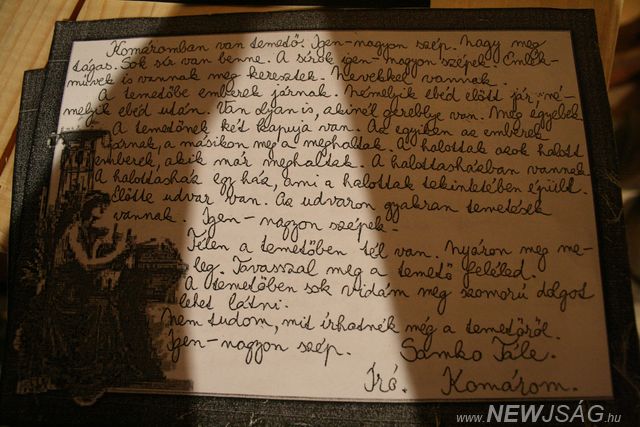 Komáromban van temető. Igen-nagyon szép. Nagy meg
tágas. Sok sír van benne. A sírok igen-nagyon szépek. Emlék-
művek is vannak meg keresztek. Nevekkel vannak.
A temetőbe emberek járnak. Némelyik ebéd előtt jár, né-
melyik ebéd után. Van olyan is, akinél gereblye van. Meg egyebek
A temetőnek két kapuja van. Az egyiken az emberek
járnak, a másikon meg a meghaltak. A halottak azok halott
emberek, akik már meghaltak. A halottasházban vannak
A halottasház egy ház, ami a halottak tekintetében épült.
Előtte udvar van. Az udvaron gyakran temetések
vannak. Igen-nagyon szépek.
Télen a temetőben tél van. Nyáron meg me-
leg. Tavasszal meg a temető feléled.
A temetőben sok vidám meg szomorú dolgot
lehet látni.
Nem tudom, mit írhatnék még a temetőről.
Igen-nagyon szép. Samko Tále.
Író. Komárom.
www.NEWJSÁG.hu